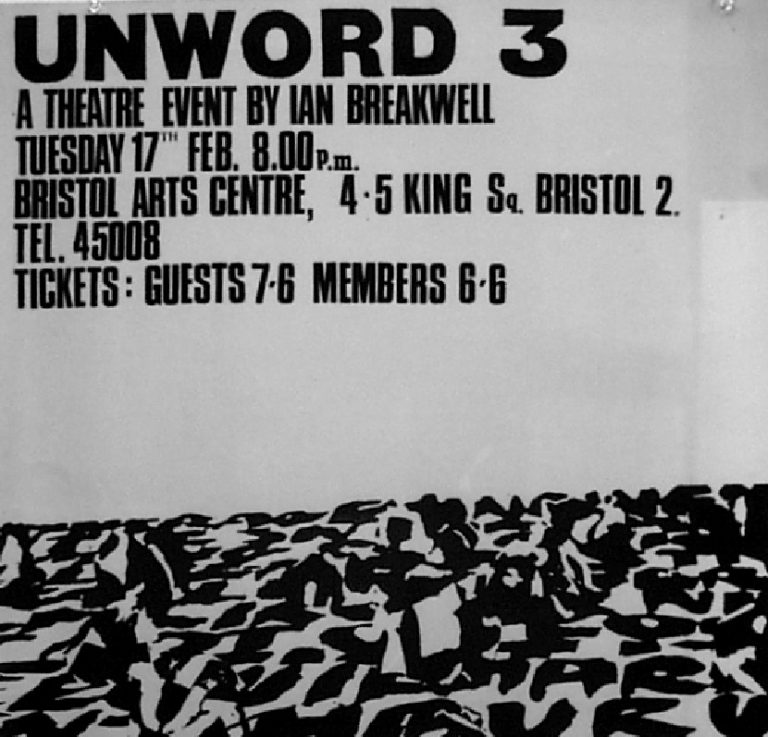 UNWORD 3
A THEATRE EVENT BY IAN BREAKWELL
TUESDAY 17TH FEB. 8.00 P.m.
BRISTOL ARTS CENTRE, 4·5 KING Sq. BRISTOL 2.
TEL. 45008
TICKETS: GUESTS 7·6 MEMBERS 6·6